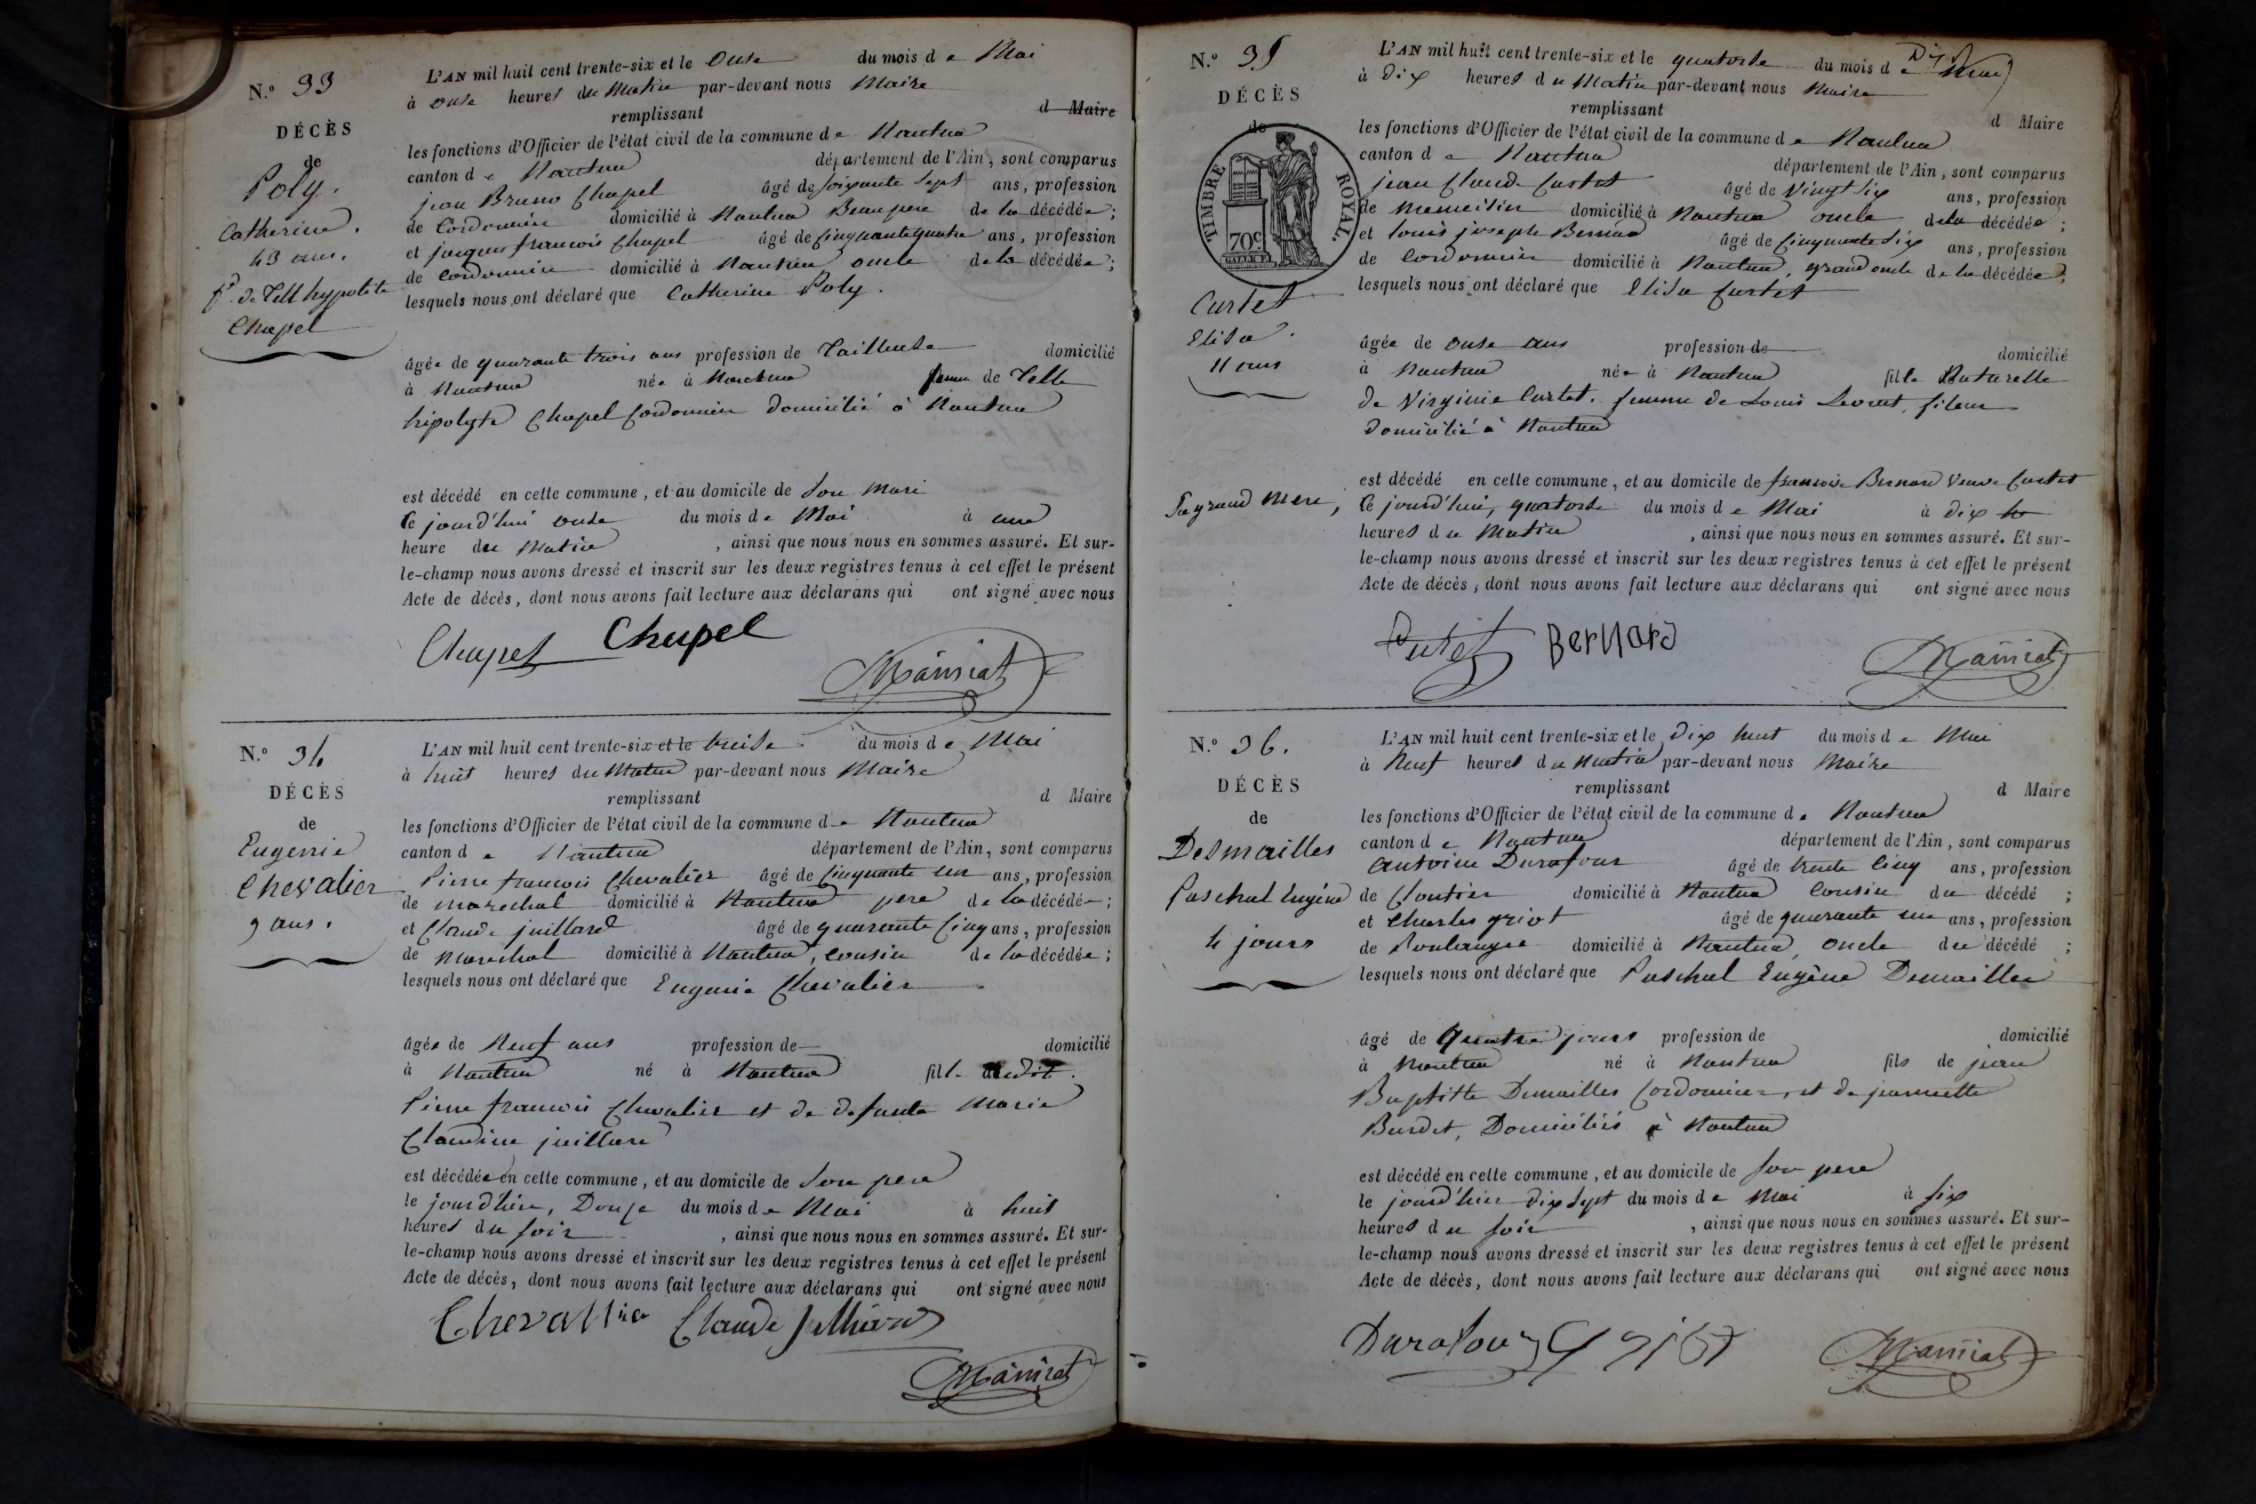 N.º 33
DÉCÈS
de
Poly.
Catherine.
43 ans.
f.e de Tell hypolite
Chapel
L'AN mil huit cent trente-six et le Onse du mois de Mai
à onse heures du Matin par-devant nous Maire
remplissant d Maire
les fonctions d'Officier de l'état civil de la commune de Nantua
canton de Nantua département de l'Ain, sont comparus
jean Bruno Chapel âgé de soixante sept ans, profession
de Cordonnier domicilié à Nantua Beaupere de la décédée;
et jacques francois Chapel âgé de Cinquante quatre ans, profession
de Cordonnier domicilié à Nantua oncle de la décédée;
lesquels nous ont déclaré que Catherine Poly.
âgée de quarante trois ans profession de Tailleuse domicilié
à Nantua née à Nantua femme de Telle
hipolyte Chapel Cordonnier domicilié à Nantua
est décédé en cette commune, et au domicile de Son Mari
Ce jourd'hui onse du mois de Mai à une
heure du Matin, ainsi que nous nous en sommes assuré. Et sur-
le-champ nous avons dressé et inscrit sur les deux registres tenus à cet effet le présent
Acte de décès, dont nous avons fait lecture aux déclarans qui ont signé avec nous
Chapel Chapel
Mainiat
N.º 34
DÉCÈS
de
Eugenie
Chevalier
9 ans.
L'AN mil huit cent trente-six et le treise du mois de Mai
à huit heures du Matin par-devant nous Maire
remplissant d Maire
les fonctions d'Officier de l'état civil de la commune de Nantua
canton de Nantua département de l'Ain, sont comparus
Pierre francois Chevalier âgé de Cinquante un ans, profession
de marechal domicilié à Nantua pere de la décédée;
et Claude juillard âgé de quarante Cinq ans, profession
de Marechal domicilié à Nantua, cousin de la décédée;
lesquels nous ont déclaré que Eugenie Chevalier
âgée de Neuf ans profession de domicilié
à Nantua né à Nantua fille dudit
Pierre francois Chevalier et de defunte Marie
Claudine juillard
est décédée en cette commune, et au domicile de Son pere
le jourd'hier, Douze du mois de Mai à huit
heures du soir, ainsi que nous nous en sommes assuré. Et sur-
le-champ nous avons dressé et inscrit sur les deux registres tenus à cet effet le présent
Acte de décès, dont nous avons fait lecture aux déclarans qui ont signé avec nous
Chevallier Claude Julliard
Mainiat
N.º 35
DÉCÈS
de
TIMBRE ROYAL.
70c
Curtet
Elisa.
11 ans
Sa grand Mere,
L'AN mil huit cent trente-six et le quatorse du mois de Mai
à Dix heures du Matin par-devant nous Maire
remplissant d Maire
les fonctions d'Officier de l'état civil de la commune de Nantua
canton de Nantua département de l'Ain, sont comparus
jean Claude Curtet âgé de Vingt six ans, profession
de Menuisier domicilié à Nantua oncle de la décédée;
et Louis joseph Bernard âgé de Cinquante six ans, profession
de Cordonnier domicilié à Nantua, grand oncle de la décédée;
lesquels nous ont déclaré que Elisa Curtet
âgée de onse ans profession de domicilié
à Nantua née à Nantua fille Naturelle
de Virginie Curtet. femme de Louis Levrat, fileur
domicilié à Nantua
est décédé en cette commune, et au domicile de francoise Bernard Veuve Curtet
Ce jourd'hui, quatorse du mois de Mai à dix
heures du Matin, ainsi que nous nous en sommes assuré. Et sur-
le-champ nous avons dressé et inscrit sur les deux registres tenus à cet effet le présent
Acte de décès, dont nous avons fait lecture aux déclarans qui ont signé avec nous
Curtet Bernard
Mainiat
N.º 36.
DÉCÈS
de
Desmailles
Paschal Eugène
4 jours
L'AN mil huit cent trente-six et le Dix huit du mois de Mai
à Neuf heures du Matin par-devant nous Maire
remplissant d Maire
les fonctions d'Officier de l'état civil de la commune de Nantua
canton de Nantua département de l'Ain, sont comparus
Antoine Durafour âgé de trente Cinq ans, profession
de Cloutier domicilié à Nantua Cousin du décédé;
et Charles griot âgé de quarante un ans, profession
de Boulanger domicilié à Nantua, oncle du décédé;
lesquels nous ont déclaré que Paschal Eugène Demailles
âgé de Quatre jours profession de domicilié
à Nantua né à Nantua fils de jean
Baptiste Demailles Cordonnier, et de jeannette
Burdet, Domiciliés à Nantua
est décédé en cette commune, et au domicile de Son pere
le jourd'hier dix sept du mois de Mai à six
heures du soir, ainsi que nous nous en sommes assuré. Et sur-
le-champ nous avons dressé et inscrit sur les deux registres tenus à cet effet le présent
Acte de décès, dont nous avons fait lecture aux déclarans qui ont signé avec nous
Durafour Griot
Mainiat